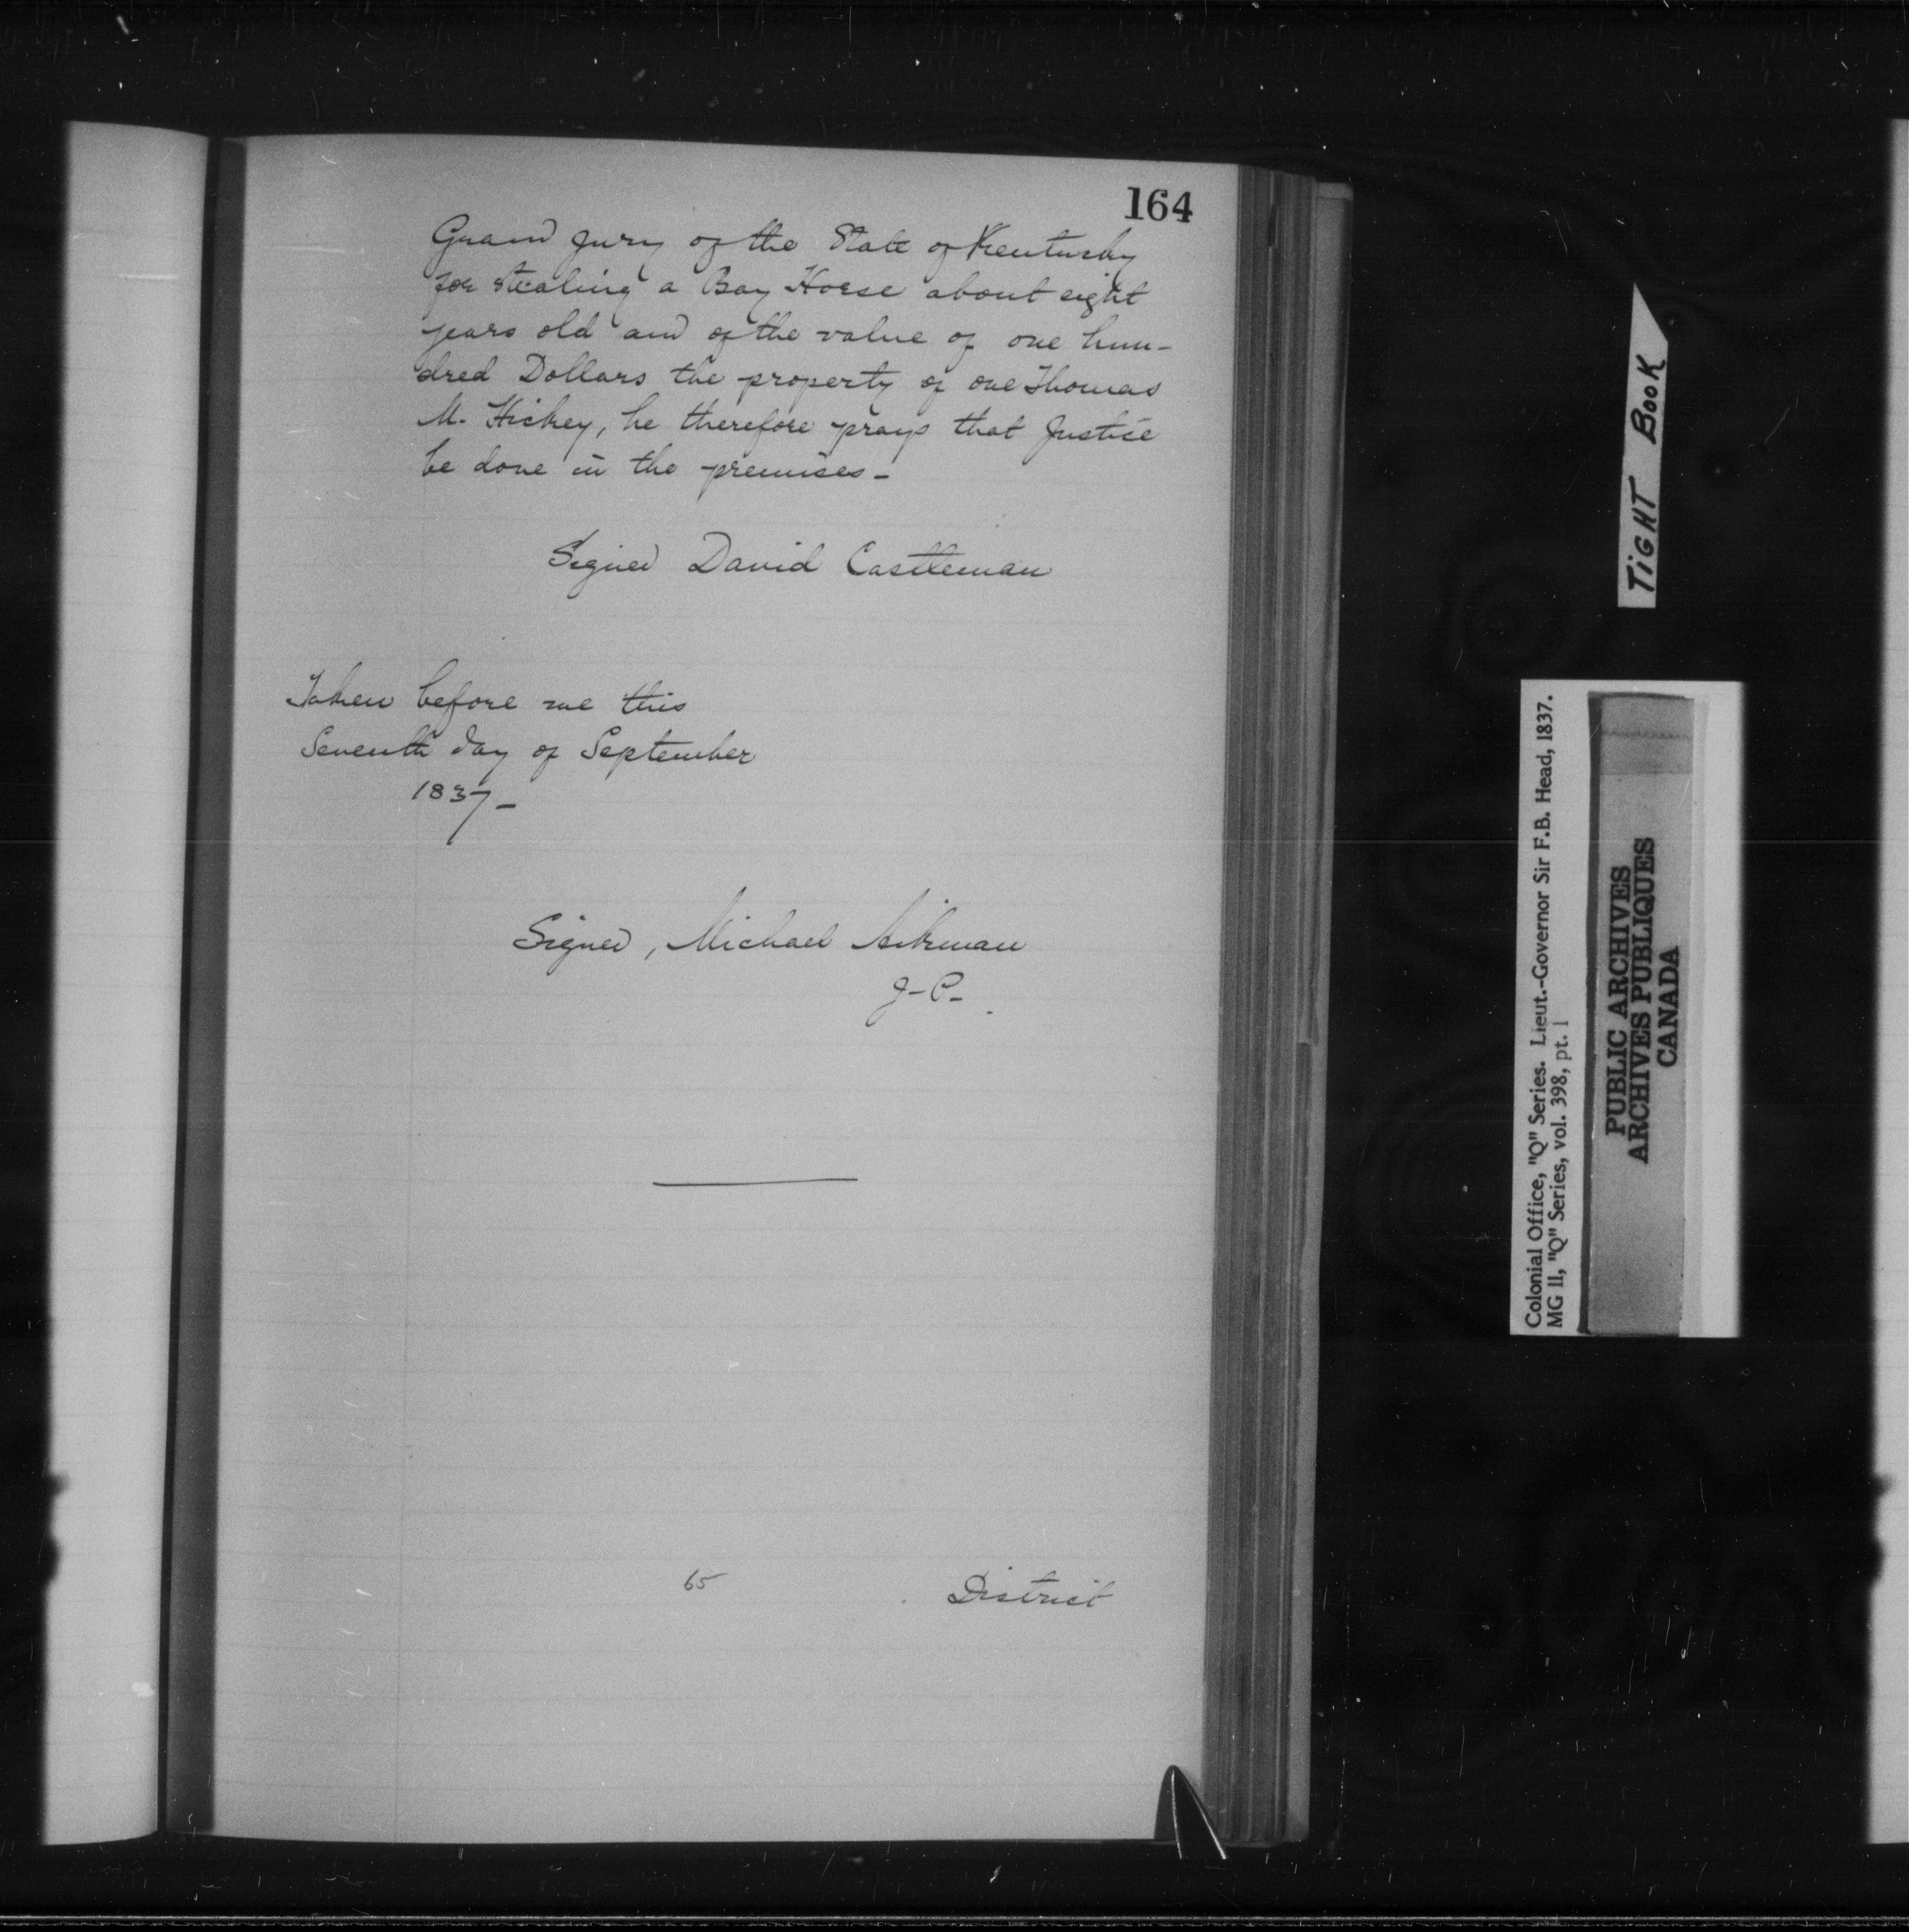 164
Grand Jury of the State of Kentucky
for stealing a Bay Horse about eight
years old and of the value of one hun-
dred Dollars the property of one Thomas
M. Hickey, he therefore prays that Justice
be done in the premises -
Signed David Castleman
Taken before me this
Seventh day of September
1837 -
Signed, Michael Aikman
J-P-
65
District
TIGHT BOOK
Colonial Office, "Q" Series. Lieut.-Governor Sir F.B. Head, 1837.
MG 11, "Q" Series, vol. 398, pt. 1
PUBLIC ARCHIVES
ARCHIVES PUBLIQUES
CANADA